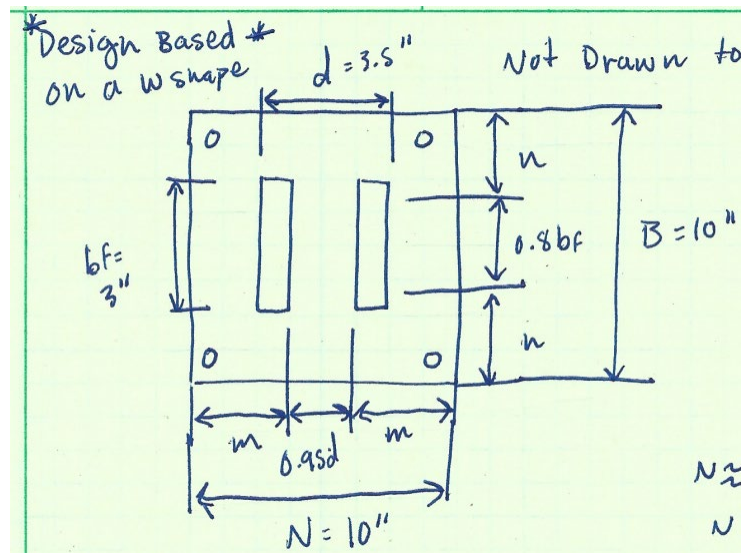 *Design Based *
on a W shape
d = 3.5"
Not Drawn to
O
O
n
bf=
3"
0.8bf
B = 10"
n
O
O
m
0.95d
m
N = 10"
N≈
N